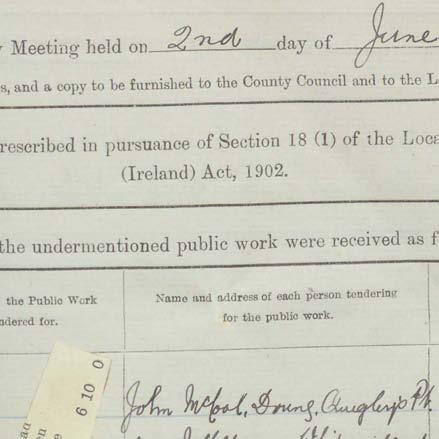 Meeting held on 2nd day of June
s, and a copy to be furnished to the County Council and to the L
rescribed in pursuance of Section 18 (1) of the Loca
(Ireland) Act, 1902.
the undermentioned public work were received as f
the Public Work
ndered for.
Name and address of each person tendering
for the public work.
6 10 0
John McCool, Doung, Quigley's Pt.